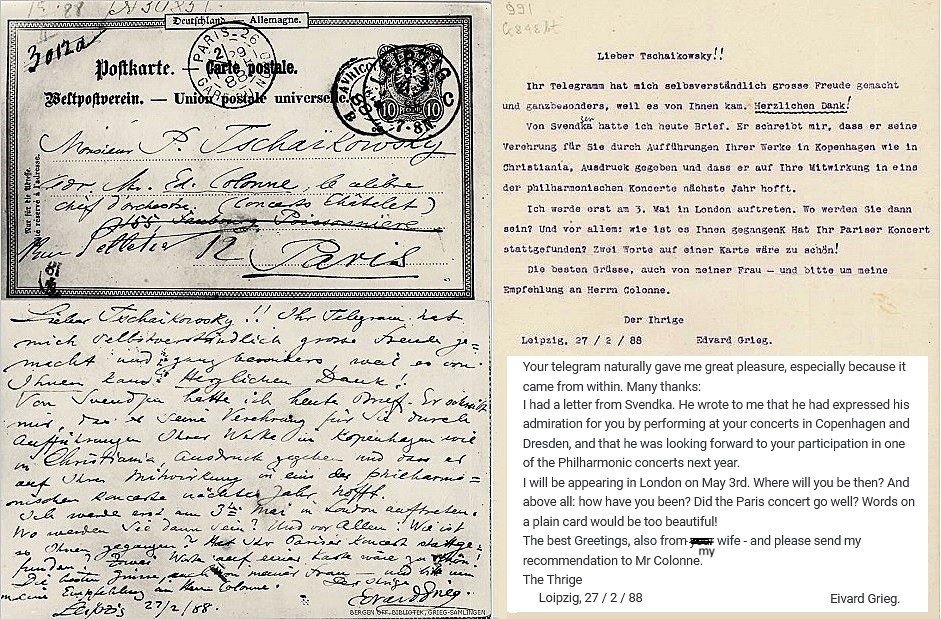 15.88
3012a
Deutschland — Allemagne.
Postkarte. — Carte postale.
Weltpostverein. — Union postale universelle.
PARIS
LEIPZIG
10 10
7-8N.
Nur für die Adresse.
Côté réservé à l'adresse.
Monsieur P. Tschaïkowsky
adr. Mr. Ed. Colonne, le célèbre
chef d'orchestre (Concerts Châtelet)
Faubourg Poissonnière
Rue Peletier 12 Paris
Lieber Tschaikowsky!! Ihr Telegram hat
mich selbstverständlich grosse Freude ge=
macht und ganz besonders, weil es von
Ihnen kam. Herzlichen Dank!
Von Svendsen hatte ich heute Brief. Er schreibt
mir, dass er seine Verehrung für Sie durch
Aufführungen Ihrer Werke in Kopenhagen wie
in Christiania, Ausdruck gegeben und dass er
auf Ihre Mitwirkung in eins der philharmo=
nischen Koncerte nächstes Jahr hofft.
Ich werde erst am 3ten Mai in London auftreten.
Wo werden Sie dann sein? Und vor Allem: Wie ist
es Ihnen gegangen? Hat Ihr Pariser Koncert stattge=
funden? Zwei Worte auf einer Karte wäre zu schön!
Die besten Grüsse, auch von meiner Frau — und bitte um
meine Empfehlung an Herrn Colonne.
Der Ihrige
Leipzig 27/2/88. Edvard Grieg.
BERGEN OFF. BIBLIOTEK, GRIEG-SAMLINGEN
991
Lieber Tschaikowsky!!
Ihr Telegramm hat mich selbstverständlich grosse Freude gemacht
und ganzbesonders, weil es von Ihnen kam. Herzlichen Dank!
Von Svendsen hatte ich heute Brief. Er schreibt mir, dass er seine
Verehrung für Sie durch Aufführungen Ihrer Werke in Kopenhagen wie in
Christiania, Ausdruck gegeben und dass er auf Ihre Mitwirkung in eins
der philharmonischen Koncerte nächstes Jahr hofft.
Ich werde erst am 3. Mai in London auftreten. Wo werden Sie dann
sein? Und vor allem: wie ist es Ihnen gegangenK Hat Ihr Pariser Konzert
stattgefunden? Zwei Worte auf einer Karte wäre zu schön!
Die besten Grüsse, auch von meiner Frau — und bitte um meine
Empfehlung an Herrn Colonne.
Der Ihrige
Leipzig, 27 / 2 / 88 Edvard Grieg.
Your telegram naturally gave me great pleasure, especially because it
came from within. Many thanks:
I had a letter from Svendka. He wrote to me that he had expressed his
admiration for you by performing at your concerts in Copenhagen and
Dresden, and that he was looking forward to your participation in one
of the Philharmonic concerts next year.
I will be appearing in London on May 3rd. Where will you be then? And
above all: how have you been? Did the Paris concert go well? Words on
a plain card would be too beautiful!
The best Greetings, also from my wife - and please send my
recommendation to Mr Colonne.
The Thrige
Loipzig, 27 / 2 / 88 Eivard Grieg.